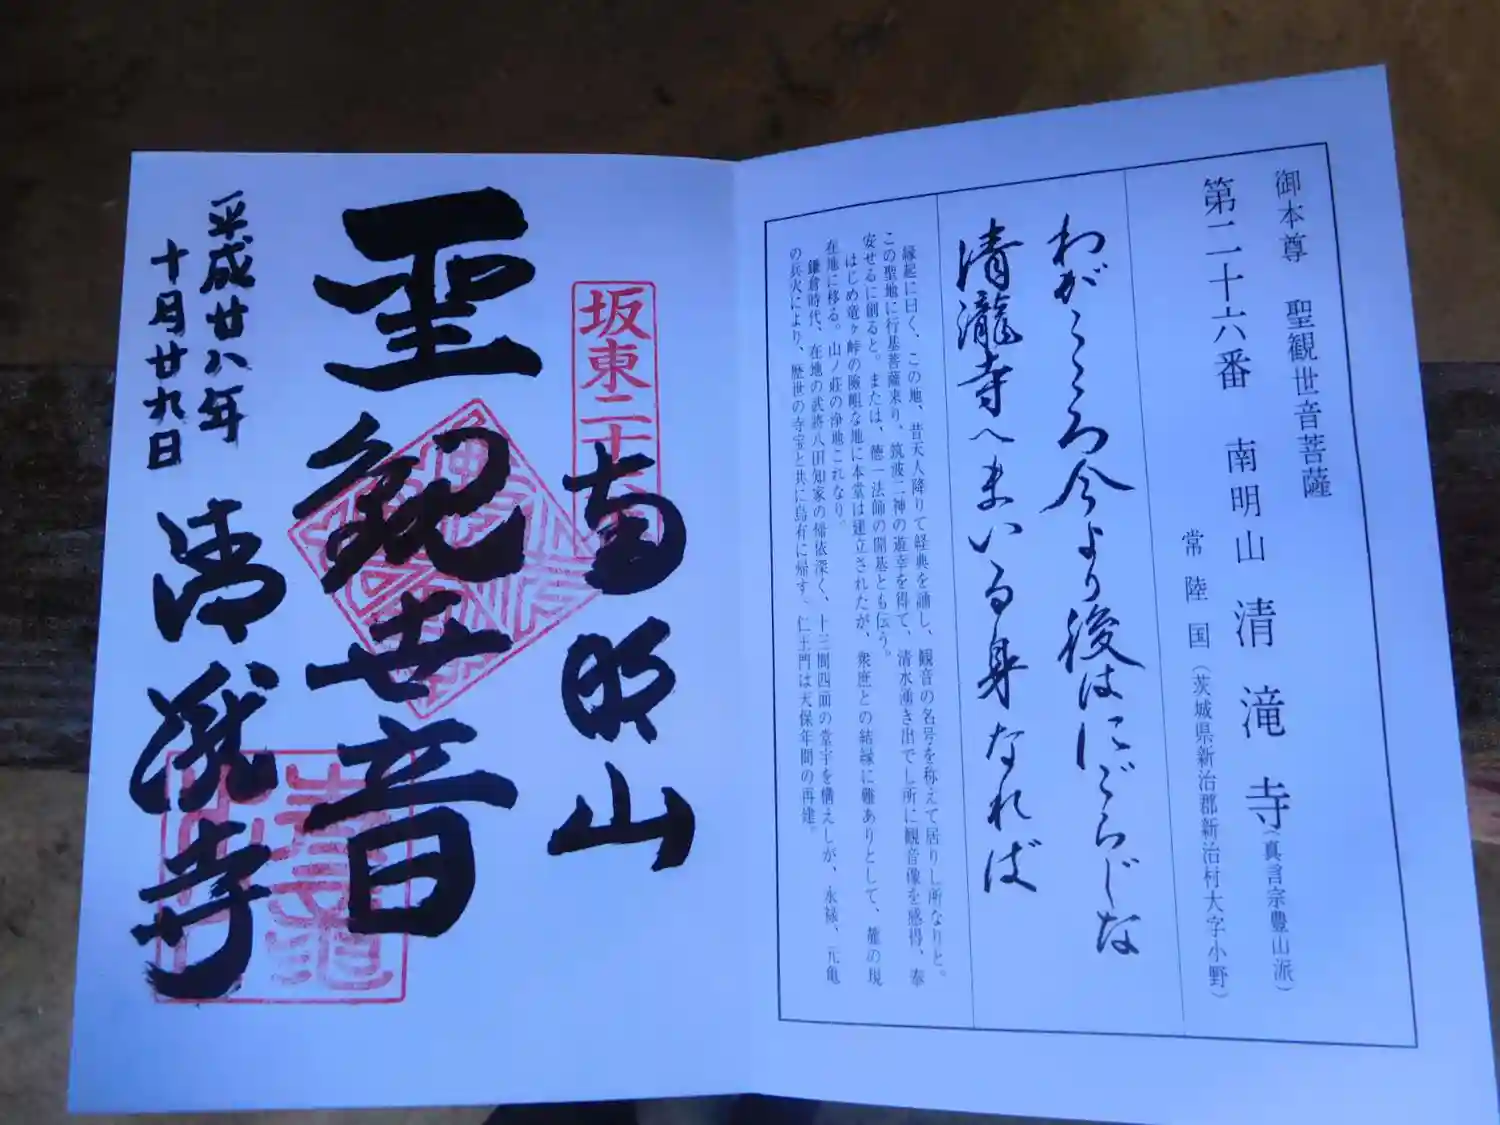 御本尊　聖観世音菩薩
第二十六番　南明山　清滝寺（真言宗豊山派）
常陸国（茨城県新治郡新治村大字小野）
わがこころ今より後はにごらじな
清瀧寺へまいる身なれば
縁起に曰く、この地、昔天人降りて経典を誦し、観音の名号を称えて居りし所なりと。
この聖地に行基菩薩来り、筑波二神の遊幸を得て、清水湧き出でし所に観音像を感得、奉
安せるに創ると。または、徳一法師の開基とも伝う。
はじめ竜ヶ峠の險岨な地に本堂は建立されたが、衆庶との結縁に難ありとして、麓の現
在地に移る。山ノ荘の浄地これなり。
鎌倉時代、在地の武将八田知家の帰依深く、十三間四面の堂宇を構えしが、永禄、元亀
の兵火により、歴世の寺宝と共に烏有に帰す。仁王門は天保年間の再建。
坂東二十
南明山
聖観世音
平成廿八年
十月廿九日
清瀧寺